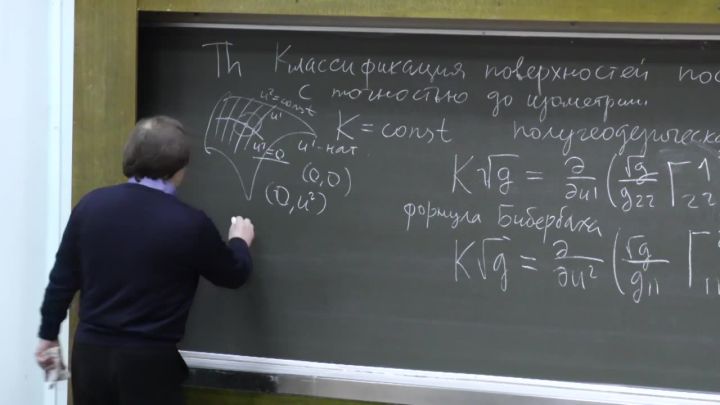 Th Классификация поверхностей пос
с точностью до изометрии.
u²=const
u¹
K = const полугеодезическа
u²=0
u¹-нат.
(0,0)
(0,u²)
K√g = ∂/∂u¹ (√g/g₂₂ Γ¹₂₂
формула Бибербаха
K√g = ∂/∂u² (√g/g₁₁ Γ